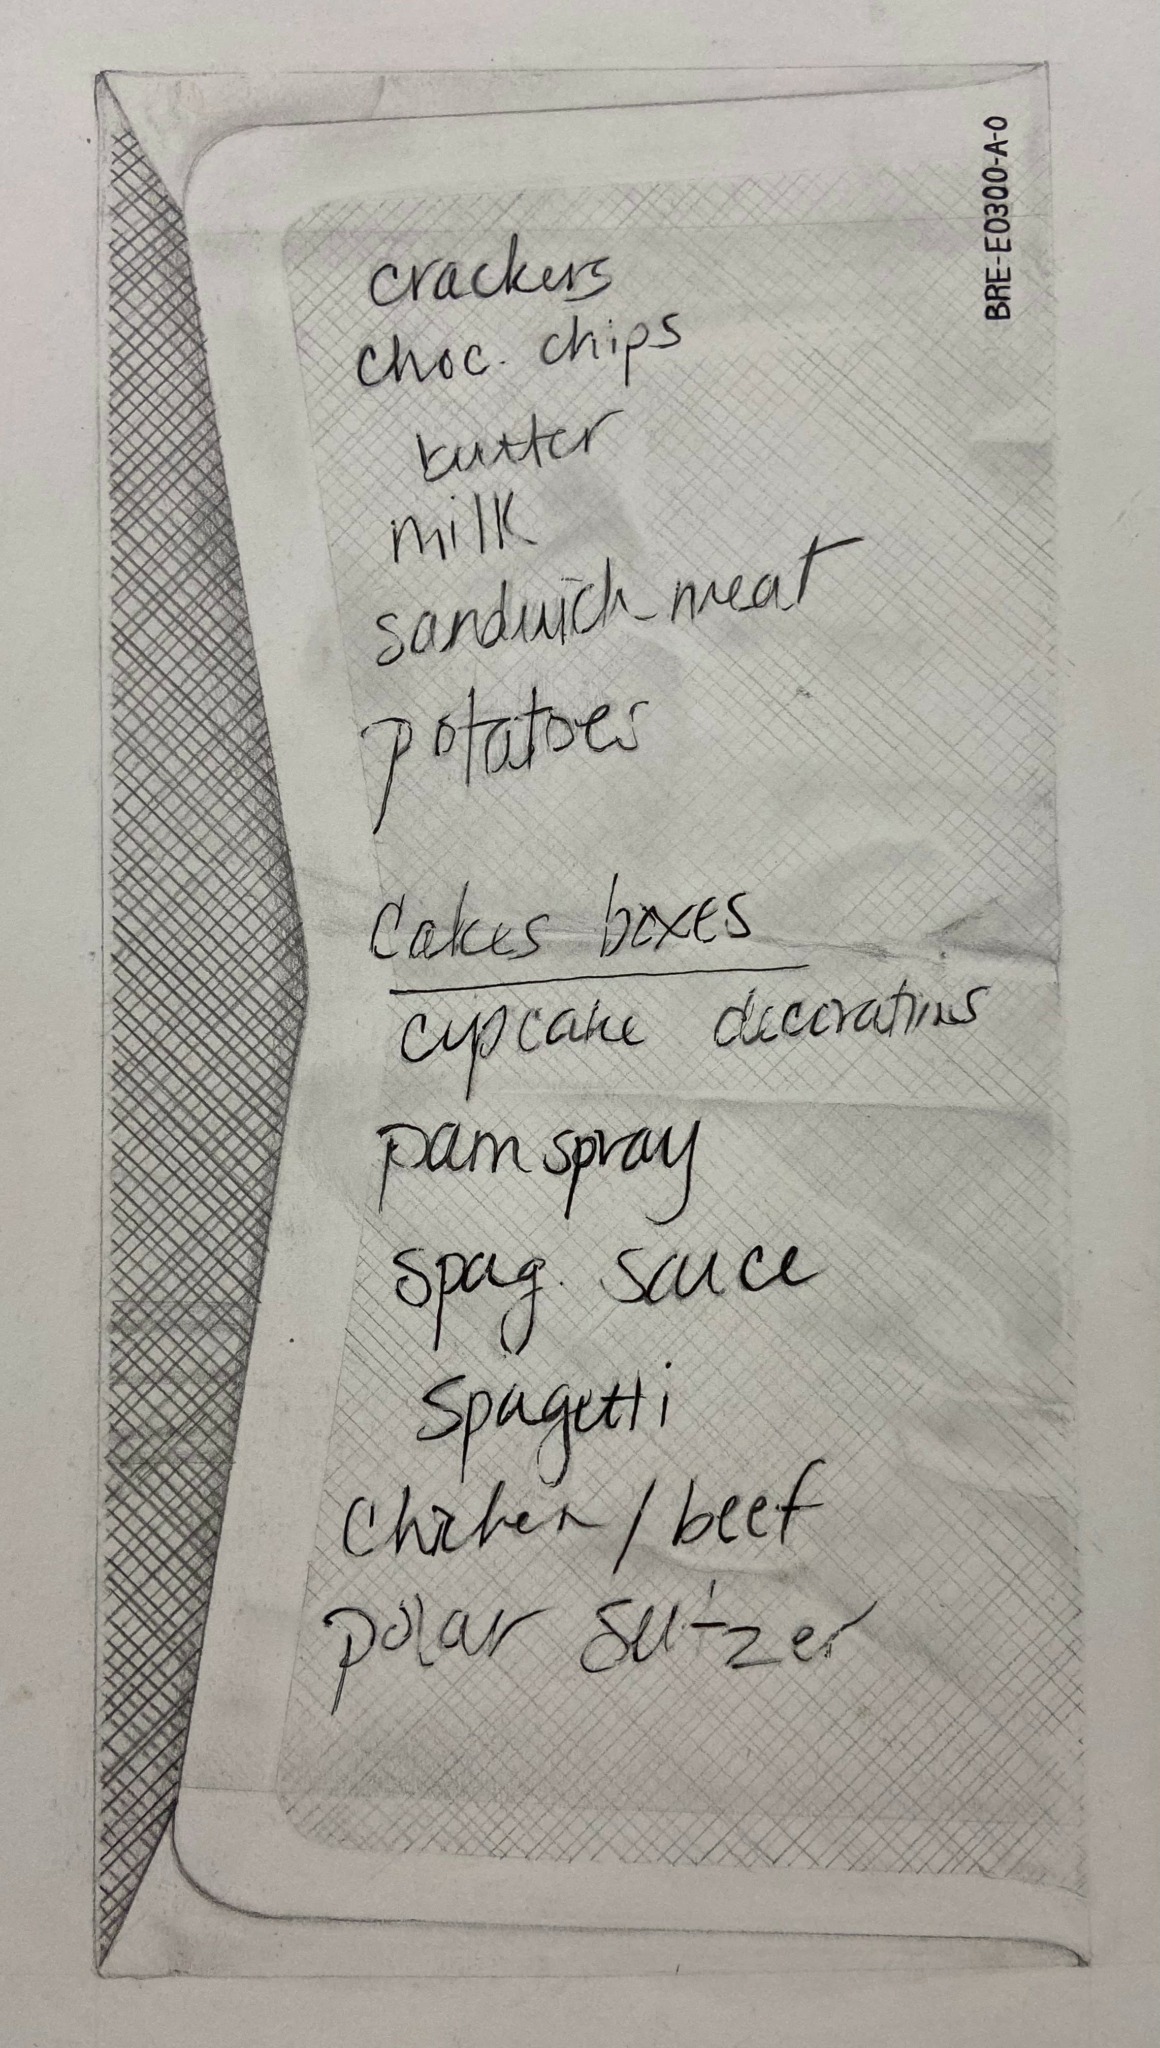 BRE-E0300-A-0
crackers
choc. chips
butter
milk
sandwich meat
potatoes
Cakes boxes
cupcake decorations
pam spray
spag. sauce
spagetti
Chicken / beef
polar seltzer